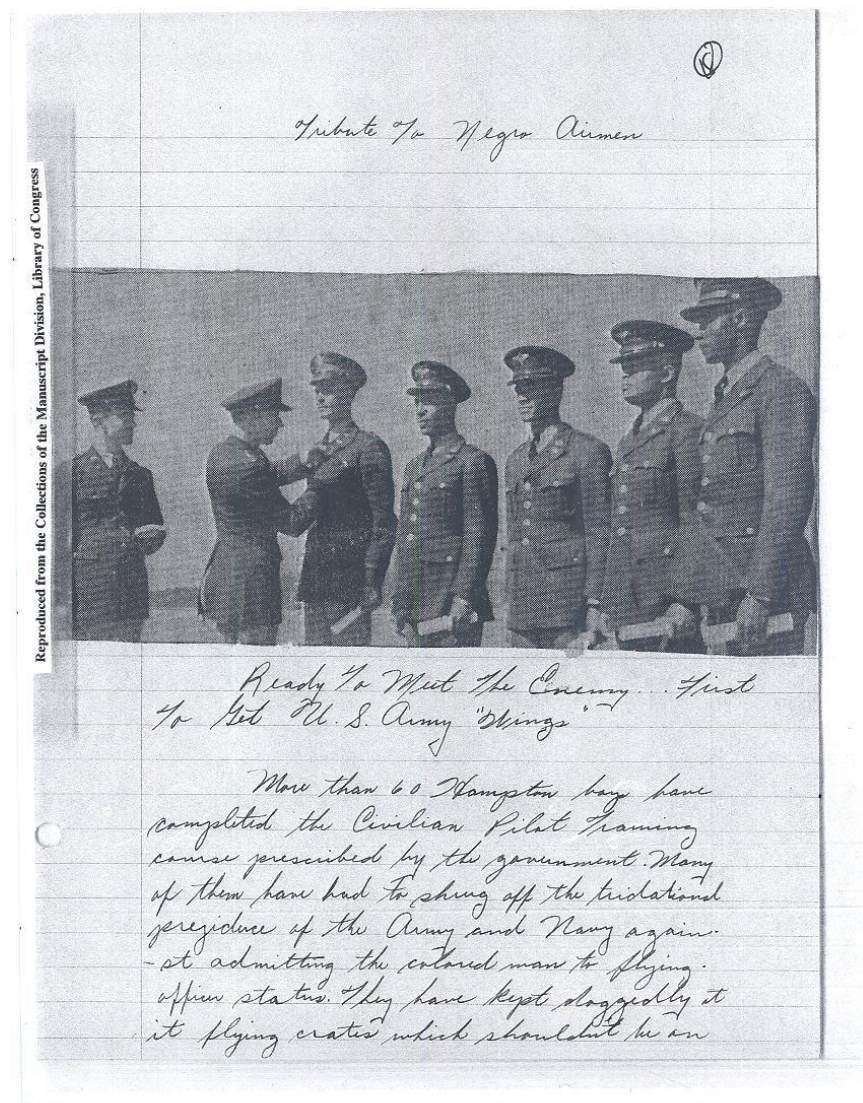 Tribute To Negro Airmen
Reproduced from the Collections of the Manuscript Division, Library of Congress
Ready To Meet The Enemy... First
To Get U. S. Army "Wings"
More than 60 Hampton boys have
completed the Civilian Pilot Training
course prescribed by the government. Many
of them have had to shrug off the tridational
prejiduce of the Army and Navy again-
-st admitting the colored man to flying.
officer status. They have kept doggedly at
it flying crates which shouldn't be on